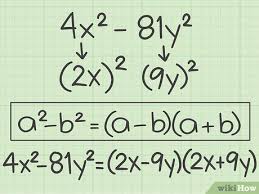 4x² - 81y²
(2x)² (9y)²
a²-b²=(a-b)(a+b)
4x²-81y²=(2x-9y)(2x+9y)
wikiHow